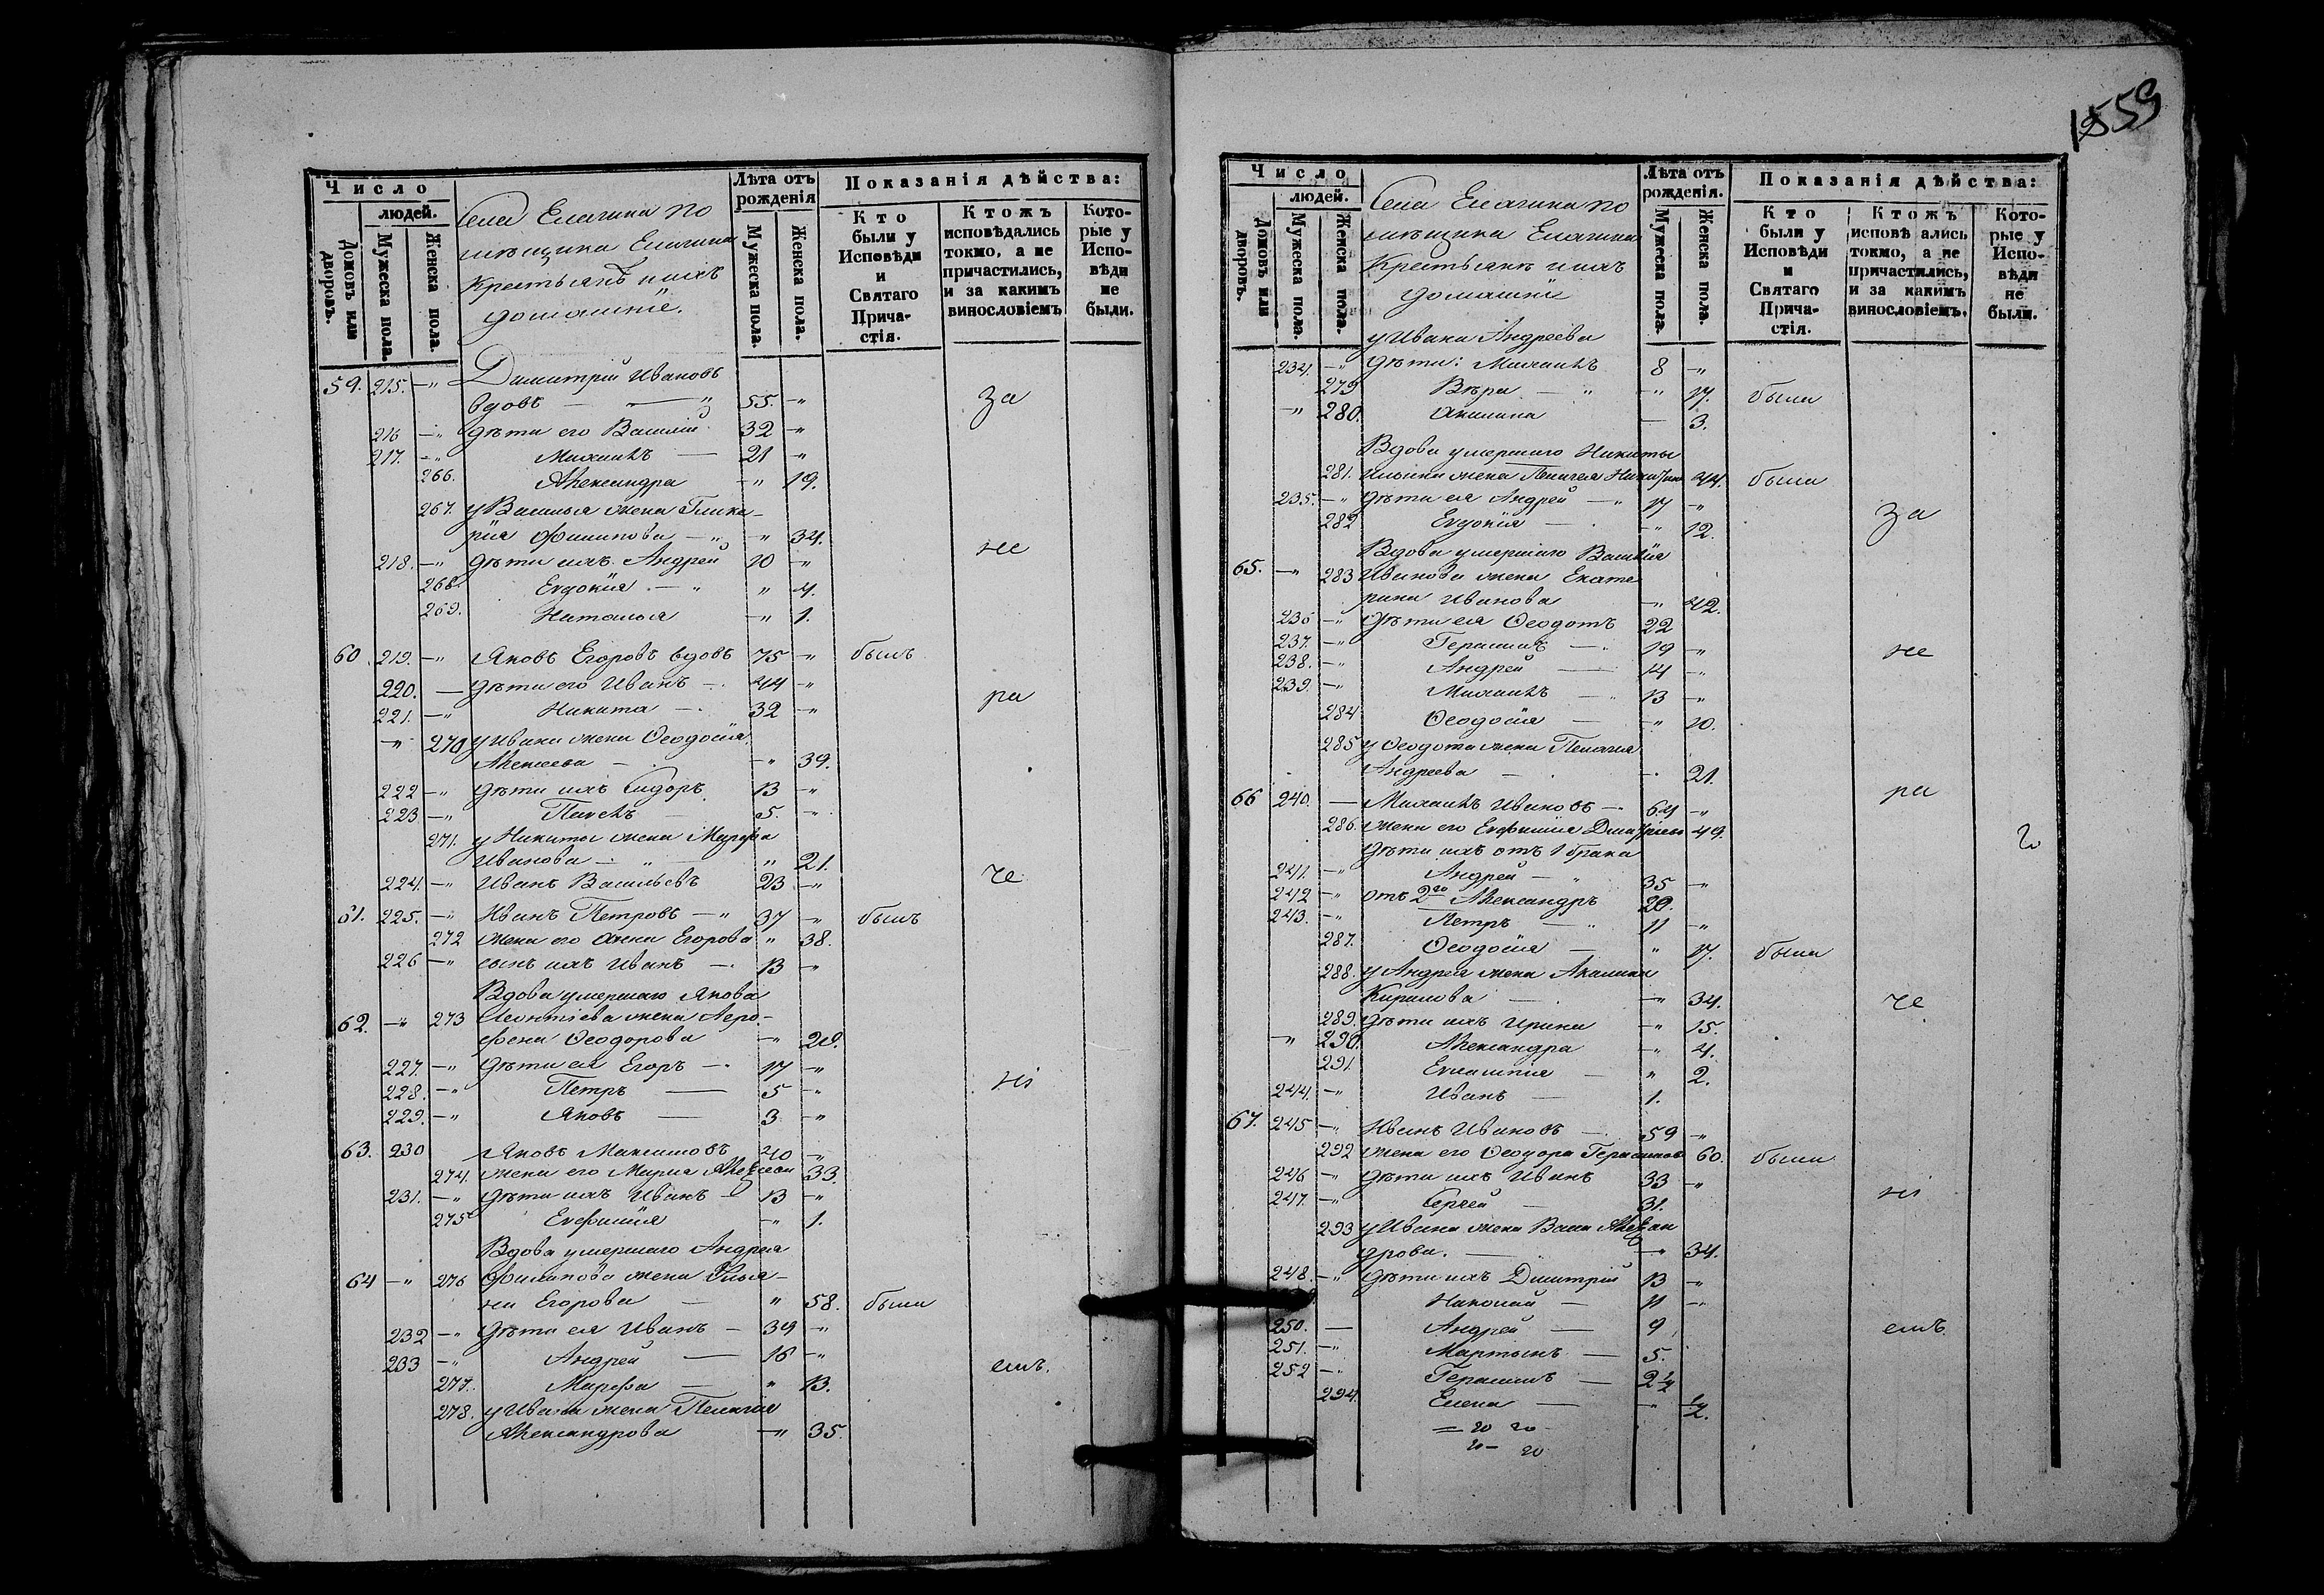 Число
людей.
Домовъ или дворовъ.
Мужеска пола.
Женска пола.
Села Елагина по
мѣщика Елагина
Крестьянъ и ихъ
домашнiе.
Лѣта отъ рожденія
Мужеска пола.
Женска пола.
Показанія дѣйства:
Кто были у Исповѣди и Святаго Прича-стія.
Ктожъ исповѣдались токмо, а не причастились, и за какимъ винословіемъ
Кото-рые у Испо-вѣди не были.
59. 215. –" Димитрій Ивановъ
вдовъ — — " 55. –" за
216 –" дѣти его Василій 32 –"
217. –" Михаилъ — 21 –"
266. Александра –" 19.
267. у Василья жена Глике-
рія Филипова –" –" 34. не
218. –" дѣти ихъ Андрей 10 –"
268. Евдокія –" " 4.
269. Наталья –" 1.
60. 219. –" Яковъ Егоровъ вдовъ 75 –" былъ
220. — дѣти его Иванъ — 44 –" ра
221. –" Никита — 32 –"
–" 270 у Ивана жена Ѳеодосія
Алексеева — –" 39.
222 –" дѣти ихъ Сидоръ 13 –"
223 –" Павелъ 5. –"
271. у Никиты жена Марѳа
Иванова — " — " 21.
224. –" Иванъ Васильевъ 23 –" че
61. 225. –" Иванъ Петровъ –" 37 –" былъ
272 жена его Анна Егорова " 38.
226 –" сынъ ихъ Иванъ — 13 –"
Вдова умершаго Якова
62. –" 273 Леонтіева жена Агро-
фена Ѳеодорова –" 28.
227. –" дѣти ея Егоръ — 17 –"
228. –" Петръ — 5 –" ні
229. –" Яковъ — 3 –"
63. 230 Яковъ Максимовъ 40 –"
274. жена его Марія Алексеева 33.
231. –" дѣти ихъ Иванъ — 13 –"
275 Евфимія –" 1.
Вдова умершаго Андрея
64 –" 276 Филипова жена Улья-
на Егорова — " 58. была
232 –" дѣти ея Иванъ — 34 –"
233 –" Андрей — 16 –" емъ.
277. Марѳа — " 13.
278. у Ивана жена Пелагія
Александрова –" 35.
559
Число
людей.
Домовъ или дворовъ.
Мужеска пола.
Женска пола.
Села Елагина по
мѣщика Елагина
Крестьянъ и ихъ
домашніе
Лѣта отъ рожденія.
Мужеска пола.
Женска пола.
Показанія дѣйства:
Кто были у Исповѣди и Святаго Прича-стія.
Ктожъ исповѣ ались токмо, а не причастились, и за какимъ винословіемъ.
Кото-рые у Испо-вѣди не были.
у Ивана Андреева
234. –" дѣти: Михаилъ 8 –"
279 Вѣра — " –" 17. была
–" 280. Акилина — 3.
Вдова умершаго Никиты
281. жена Пелагея 44. была
235. –" дѣти ея Андрей –" 17 –" за
282 Евдокія — –" 12.
Вдова умершаго Василія
65. –" 283 Иванова жена Екате
рина Иванова –" 42.
236 –" дѣти ея Ѳеодотъ 22
237. –" Герасимъ — 19 –" не
238. –" Андрей — 14 –"
239. –" Михаилъ — 13 –"
284 Ѳеодосія — –" 10.
285 у Ѳеодота жена Пелагія
Андреева — — 21.
66 240. — Михаилъ Ивановъ — 64 –" ра
286. жена его Евфимія 49.
дѣти ихъ отъ 1 брака
241. –" Андрей — " 35 –"
242 –" отъ 2го Александръ 20.
243. –" Петръ — " 11 –"
287. Ѳеодосія — " 17. была
288. у Андрея жена Акилина
Кирилова — –" 34. че
289. дѣти ихъ Ирина –" 15.
–" 290. Александра –" 4.
291. Евлампія — " 2.
244. –" Иванъ — 1.
67. 245 –" Иванъ Ивановъ — 59 –"
292 жена его Ѳеодора Герасимова 60. была
246 –" дѣти ихъ Иванъ 33 –" ні
247. –" Сергей — 31.
293 у Ивана жена Васса Алексан
дрова. — –" 34.
248. –" дѣти ихъ Димитрій 13 –"
Николай — 11 –"
250. — Андрей — 9 емъ
251. –" Мартынъ — 5.
252 –" Герасимъ — 2½
294. Елена — –" ½.
= 20 20
20 – 20